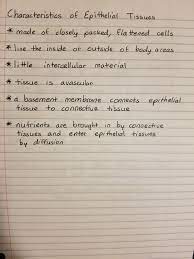 Characteristics of Epithelial Tissues
* made of closely packed, flattened cells
* line the inside or outside of body areas
* little intercellular material
* tissue is avascular
* a basement membrane connects epithelial
tissue to connective tissue
* nutrients are brought in by connective
tissues and enter epithelial tissues
by diffusion